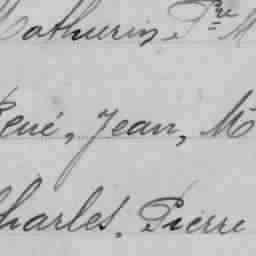 Mathurin, Pre M
René, Jean, M
Charles. Pierre